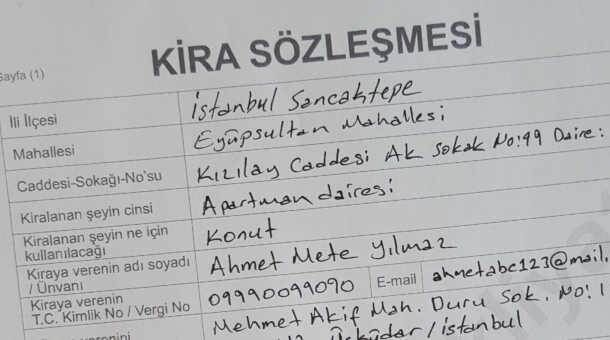 KİRA SÖZLEŞMESİ
Sayfa (1)
İli İlçesi İstanbul Sancaktepe
Mahallesi Eyüpsultan Mahallesi
Caddesi-Sokağı-No'su Kızılay Caddesi Ak Sokak No:49 Daire:
Kiralanan şeyin cinsi Apartman dairesi
Kiralanan şeyin ne için
kullanılacağı Konut
Kiraya verenin adı soyadı
/ Ünvanı Ahmet Mete Yılmaz
Kiraya verenin
T.C. Kimlik No / Vergi No 09990099090 E-mail ahmetabc123@mail.
Mehmet Akif Mah. Duru Sok. No: 1
Üsküdar/İstanbul